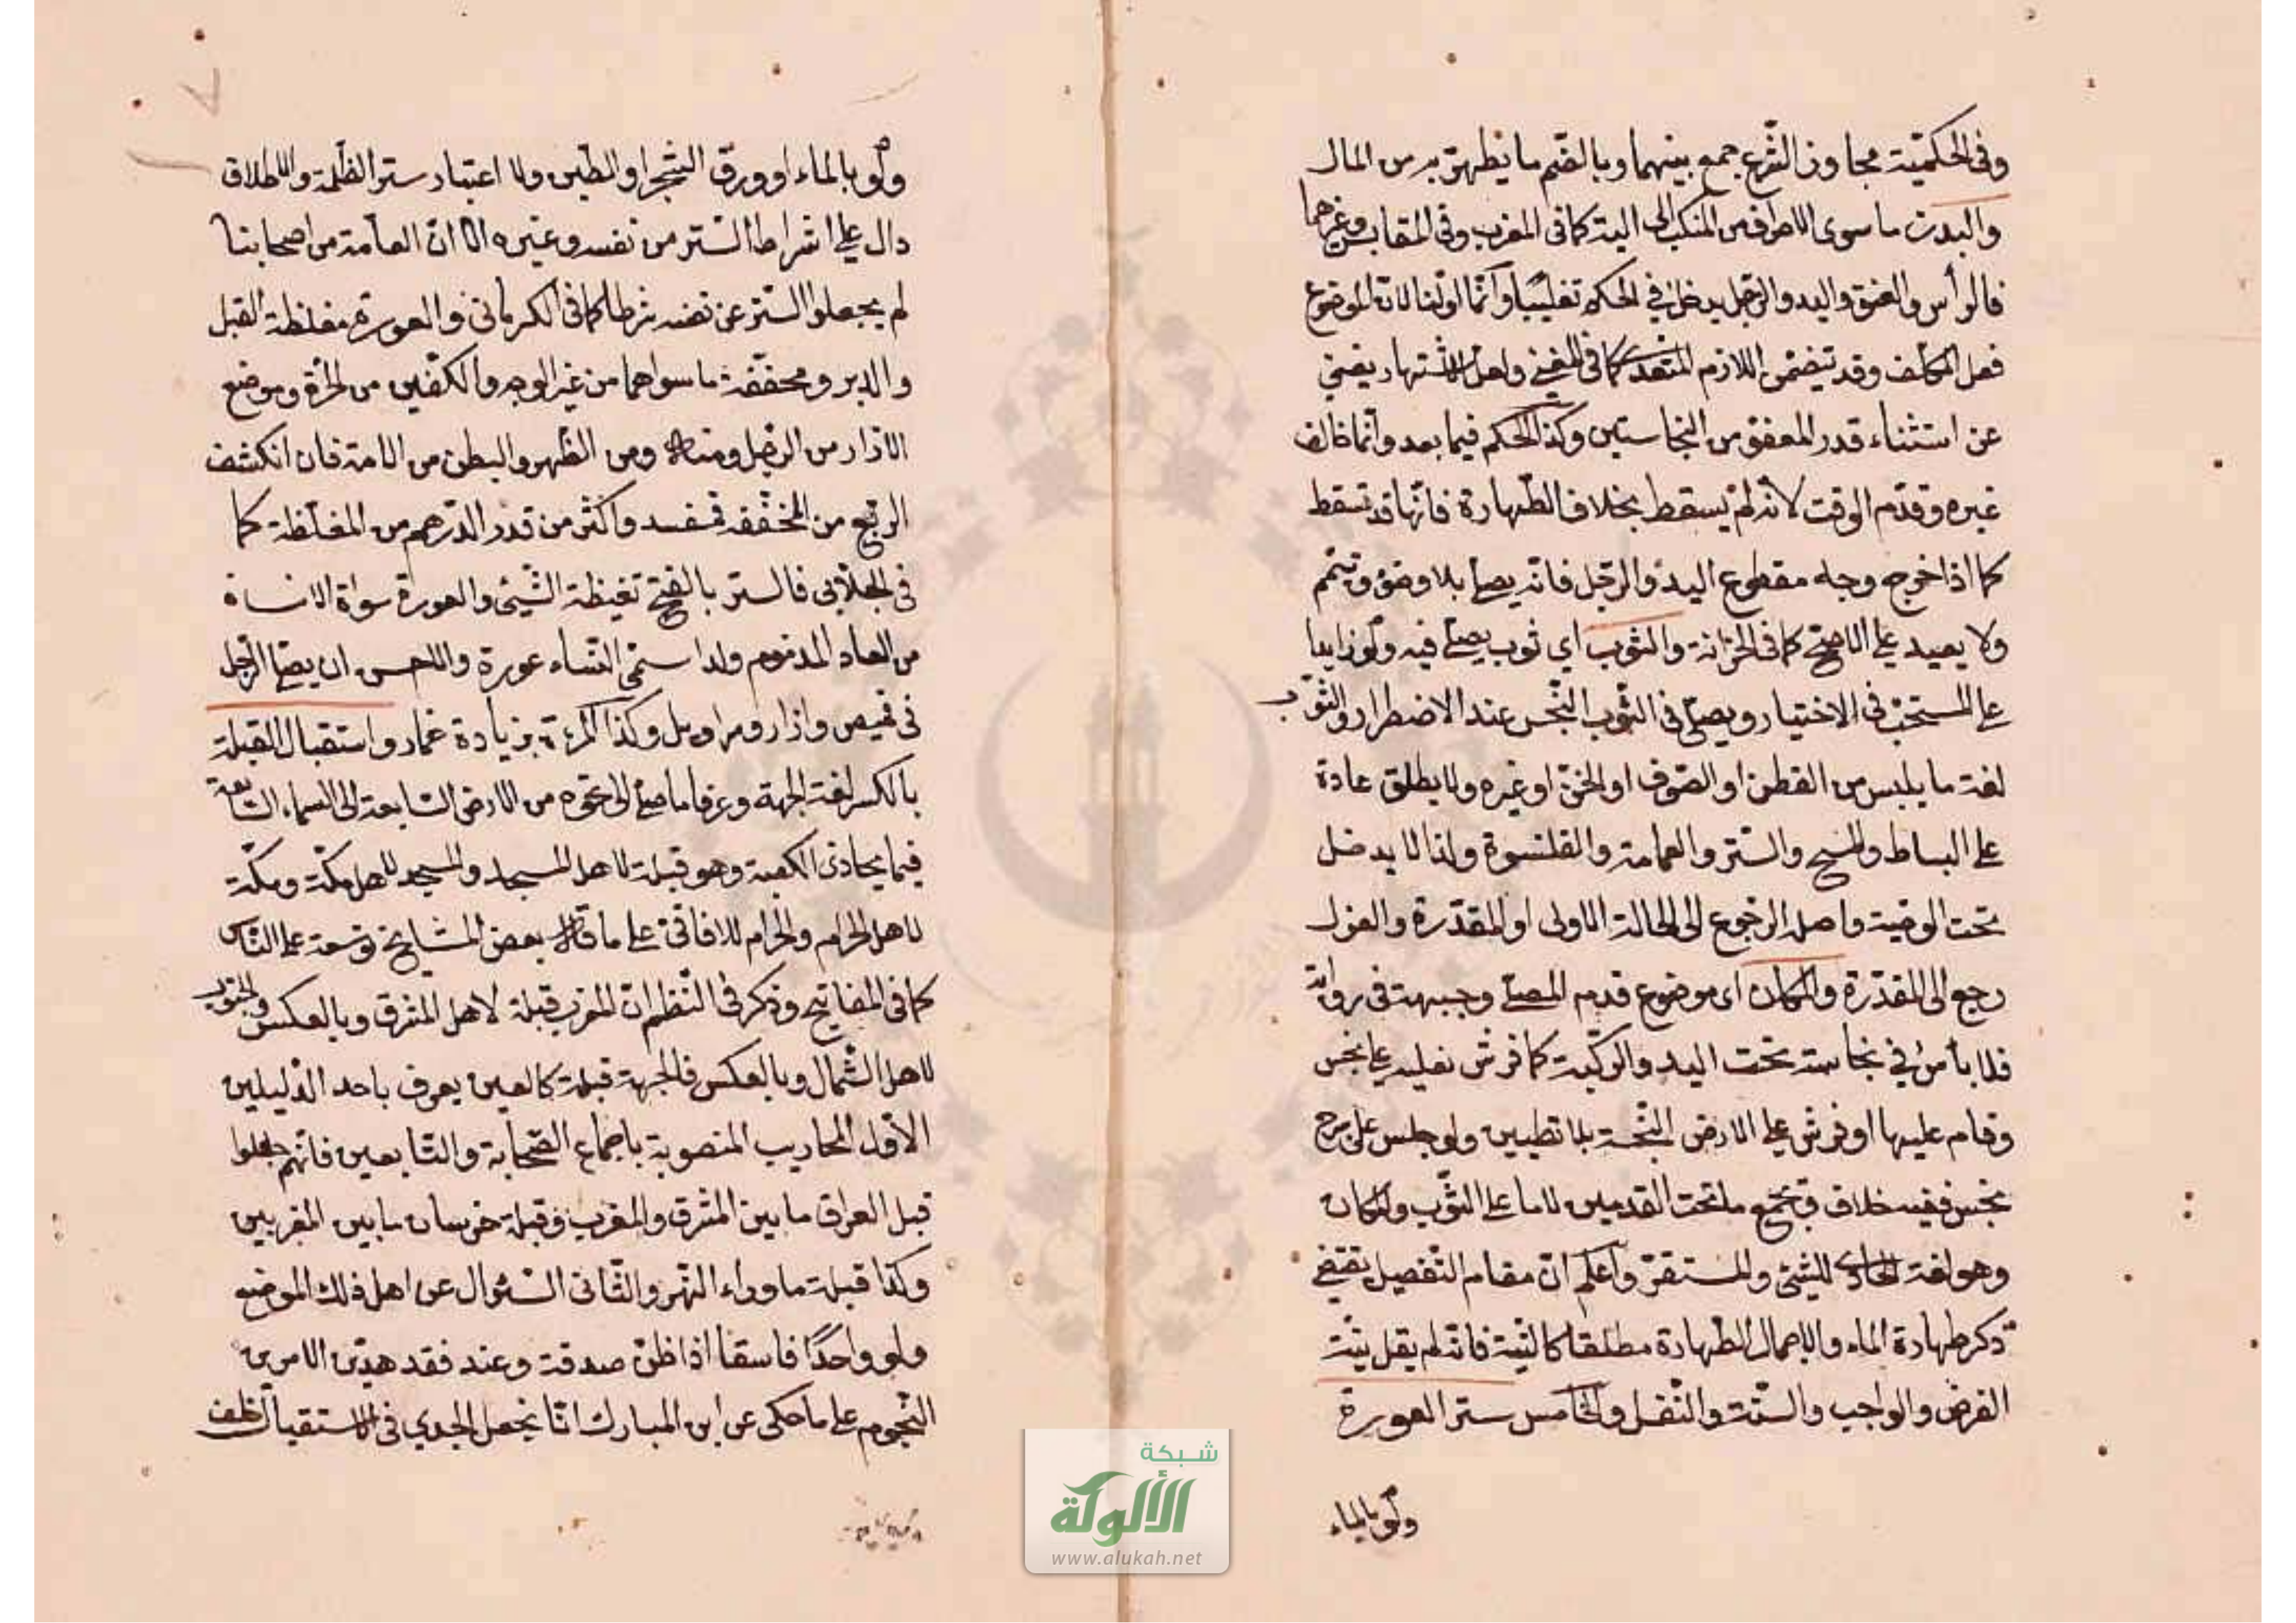 وفى الحكميّة مجاوزى الشرع جمع بينهما وبالضم ما يطهر به من المال
والبدن ما سوى الاطراف من المنكب الى الية كما فى المغرب وفى المقايس وغيرهما
فالرأس والعنق واليد والرجل يدخل في الحكم تغليبًا وانّما اولنا لانّ الموضوع
فعل المكلف وقد يتضمّن اللازم المتعدى كما فى المغنى واهل الاشتهار يغنى
عن استثناء قدر المعفو من النجاستين وكذا الحكم فيما بعد وانّما خالف
غيره وقدّم الوقت لانه لم يسقط بخلاف الطّهارة فانّها قد تسقط
كما اذا خرج وجه مقطوع اليد والرجل فانّه يصلّى بلا وضوء وتيمّم
ولا يعيد على الاصحّ كما فى الخزانة والثوب اي ثوب يصلّى فيه ولو زايدا
على المستحبّ فى الاختيار ويصلّى فى الثوب النّجس عند الاضطرار والثّوب
لغة ما يلبس من القطن او الصّوف او الخزّ او غيره ولا يطلق عادة
على البساط والمسح والستر والعمامة والقلنسوة ولذا لا يدخل
تحت الوصية واصله الرجوع الى الحالة الاولى او المقدّرة والغزل
رجع الى المقدّرة والمكان اى موضوع قدم المصلّى وجبهته فى رواية
فلا بأس في نجاسة تحت اليد والركبة كما فرش نعليه على نجس
وقام عليها او فرش على الارض النّجسة بلا تطيين ولو جلس على سرج
نجس ففيه خلاف وتجمع ما تحت القدمين لا ما على الثّوب والمكان
وهو لغة الحاوى للشيئ والمستقرّ واعلم انّ مقام التّفصيل يقتضى
ذكر طهارة الماء والاجمال الطّهارة مطلقا كالنيّة فانّه لم يقل بنيّة
الفرض والواجب والسّنّة والنّفل والخامس ستر العورة
ولو بالماء
ولو بالماء او ورق الشّجر او الطّين ولا اعتبار ستر الظّلمة والاطلاق
دال على اشراط السّتر من نفسه وغيره الا انّ العامّة من اصحابنا
لم يجعلوا السّتر عن نفسه شرطا كما فى الكرمانى والعورة مغلظة القبل
والدبر ومخففة ما سواهما من غير الوجه والكفّين من الحرّة وموضع
الازار من الرجل ومنه ومن الظّهر والبطن من الامة فان انكشف
الربع من المخفّفة تفسد واكثر من قدر الدّرهم من المغلّظة كما
فى الجلّابى فالستر بالفتح تغيظة الشّيئ والعورة سوأة الانسان
من العار المذموم ولذا سمّى النّساء عورة والاحسن ان يصلّى الرّجل
فى قميص وازار وسراويل وكذا المرءة بزيادة خمار واستقبال القبلة
بالكسر لغة الجهة وعرفا ما صلّى الى نحوه من الارض السّابعة الى السّماء السّابعة
فيما يحاذى الكعبة وهو قبلة لاهل المسجد والمسجد لاهل مكّة ومكّة
لاهل الحرام والحرام للافاقىّ على ما قاله بعض المشايخ توسعة على النّاس
كما فى المفاتيح وذكر فى النّظم انّ المغرب قبلة لاهل المشرق وبالعكس والجنوب
لاهل الشّمال وبالعكس فالجهة قبلة كالعين يعرف باحد الدّليلين
الاوّل المحاريب المنصوبة باجماع الصّحابة والتّابعين فانّهم جعلوا
قبل العراق ما بين المشرق والمغرب وقبلة خرسان ما بين المغربين
وكذا قبلة ما وراء النّهر والثّانى السّئوال عن اهل ذلك الموضع
ولو واحدًا فاسقا اذا ظنّ صدقة وعند فقد هذين الامرين
النّجوم على ما حكى عن ابن المبارك انّا نجعل الجدي فى الاستقبال خلف
شبكة
الألوكة
www.alukah.net